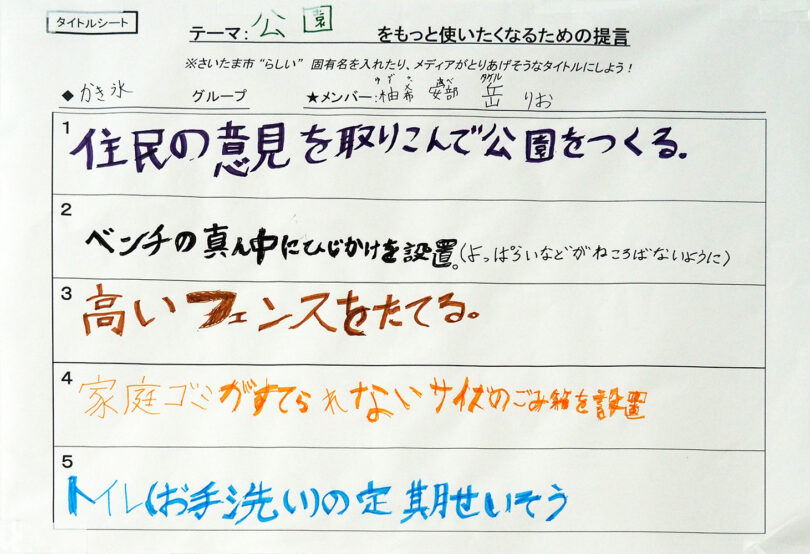 タイトルシート
テーマ：公園をもっと使いたくなるための提言
※さいたま市“らしい”固有名を入れたり、メディアがとりあげそうなタイトルにしよう！
◆かき氷グループ ★メンバー：柚希 安部 岳 りお
1 住民の意見を取りこんで公園をつくる。
2 ベンチの真ん中にひじかけを設置。（よっぱらいなどがねころばないように）
3 高いフェンスをたてる。
4 家庭ゴミがすてられないサイズのごみ箱を設置
5 トイレ(お手洗い)の定期せいそう